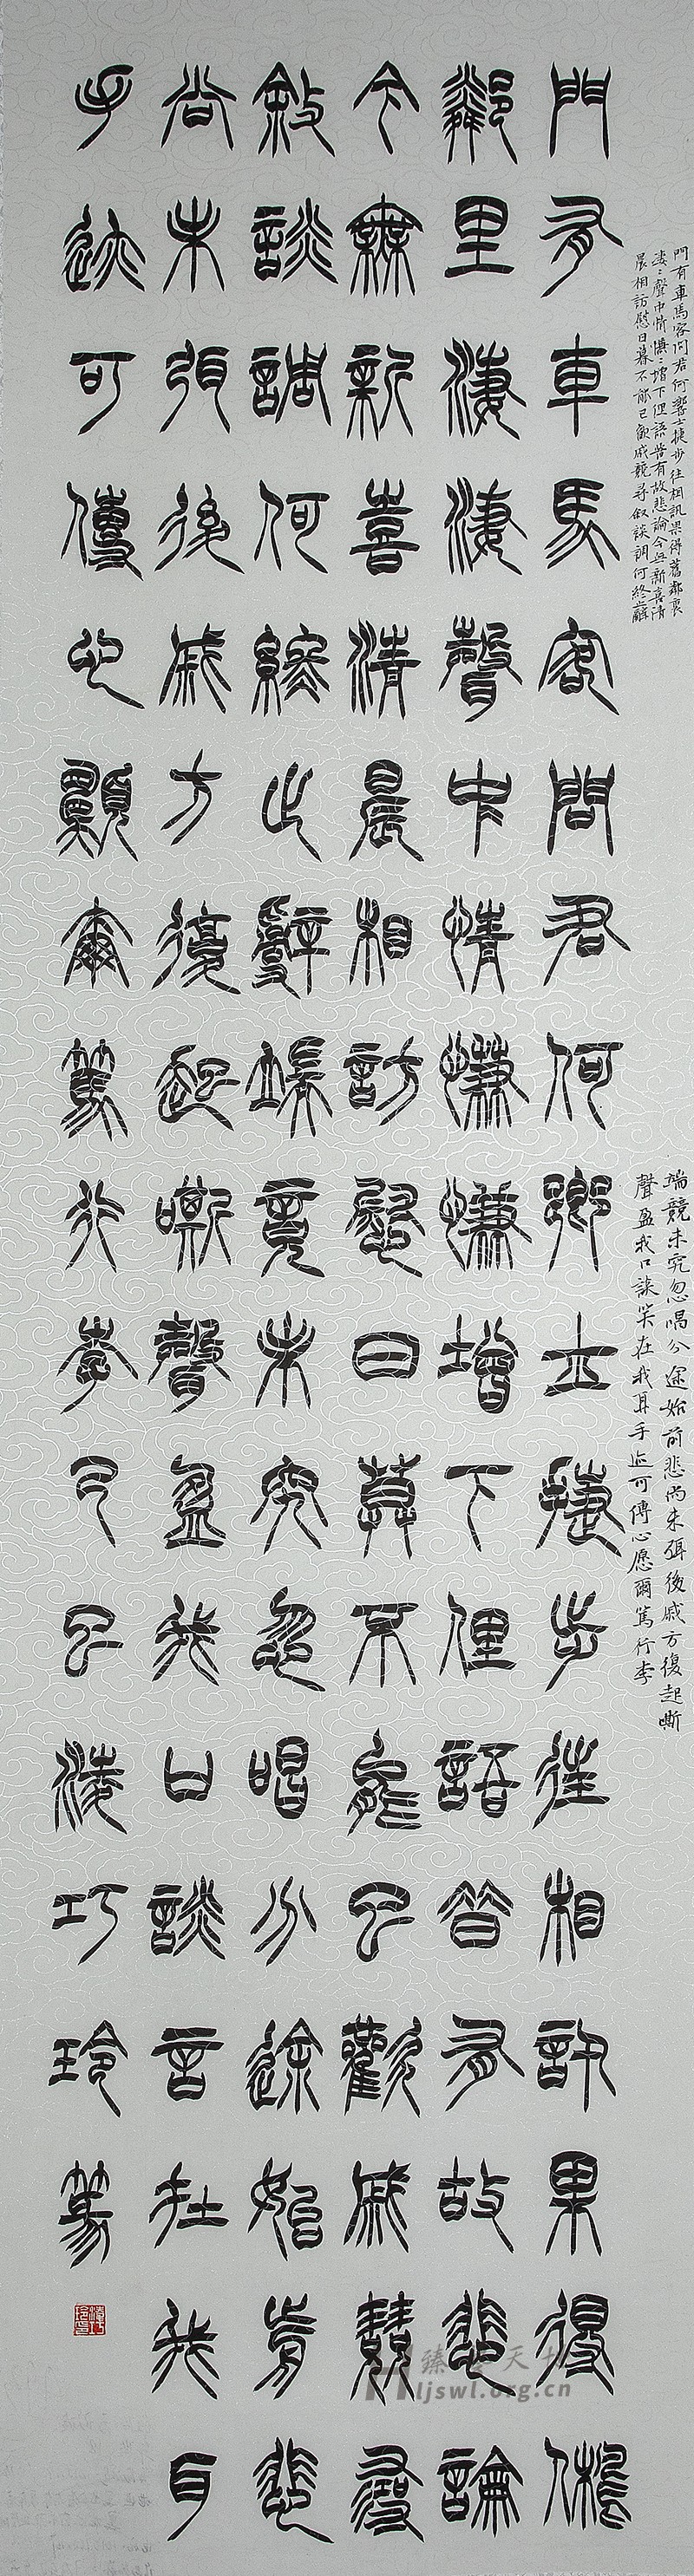 門有車馬客問君何鄉士捷步往相訊果得舊鄰裏
凄〻聲中情慊〻增下俚語昔有故悲論今無新喜清
晨相訪慰日暮不能已歡戚競尋叙談調何終止辭
端競未究忽唱分途始前悲尚未弭後戚方復起嘶
聲盈我口談笑在我耳手迹可傳心愿爾篤行李
門有車馬客問君何鄉士捷步往相訊果得舊
鄰里淒淒聲中情慊慊增下俚語昔有故悲論
今無新喜清晨相訪慰日莫不能已歡戚競尋
敘談調何終止辭端竟未究忽唱分途始前悲
尚未弭後戚方復起嘶聲盈我口談言在我耳
手迹可傳心願爾篤行李乙巳淩巧玲篆
ljswl.org.cn